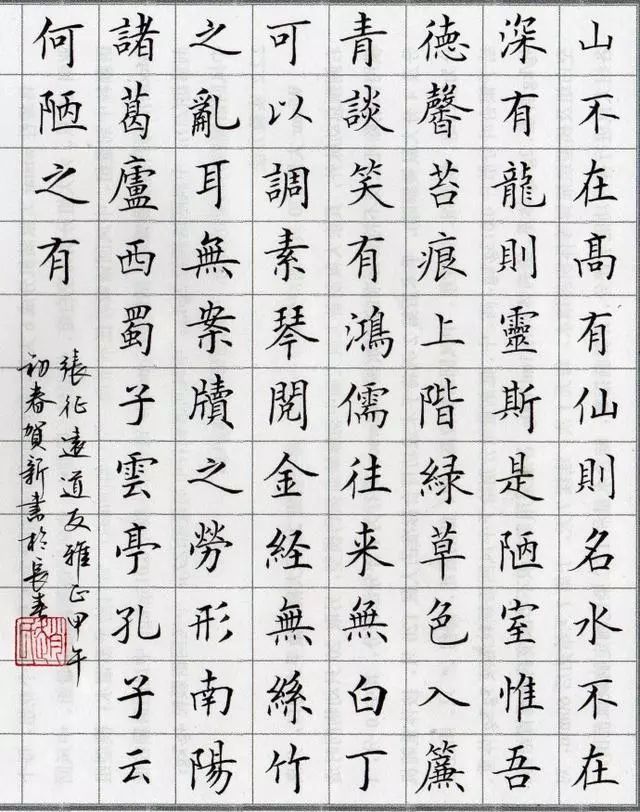 山不在髙有仙則名水不在
深有龍則靈斯是陋室惟吾
德馨苔痕上階緑草色入簾
青談笑有鴻儒往来無白丁
可以調素琴閱金経無絲竹
之亂耳無案牘之勞形南陽
諸葛廬西蜀子雲亭孔子云
何陋之有
張征遠道友雅正甲午
初春賀新書於長春